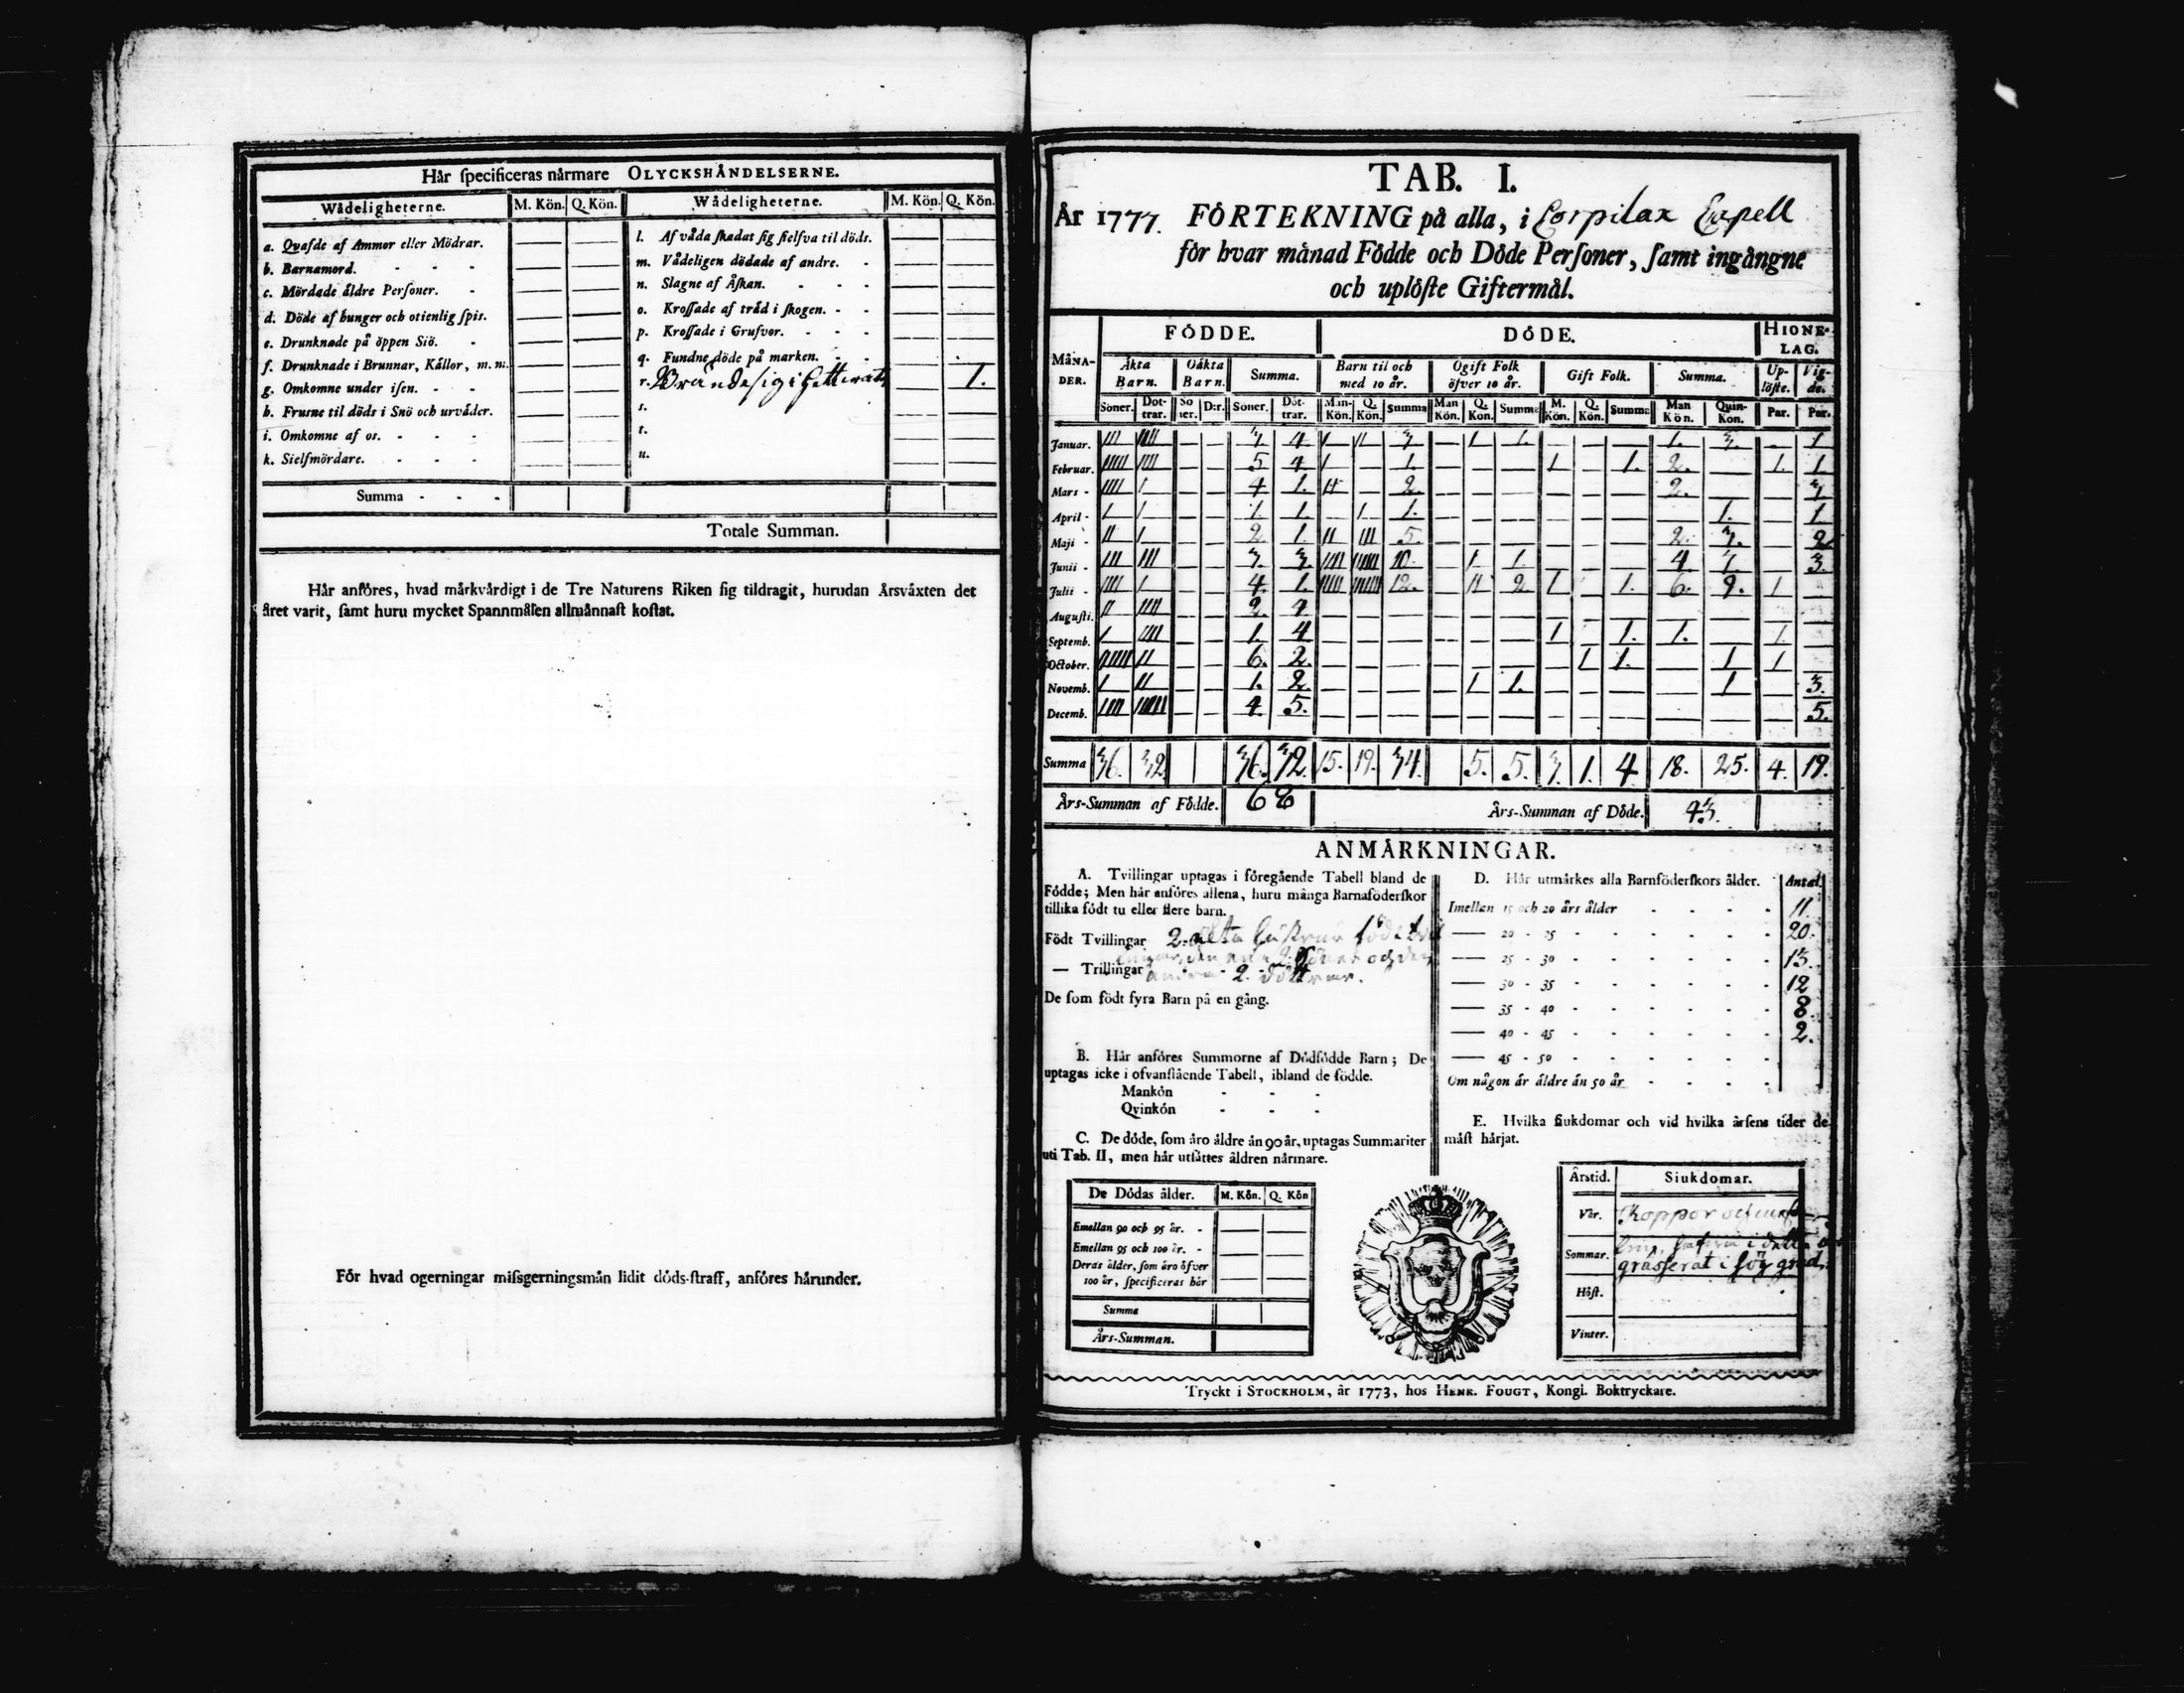 Hår specificeras nårmare OLYCKSHÅNDELSERNE.
Wådeligheterne. M. Kön. Q. Kön. Wådeligheterne. M. Kön. Q. Kön.
a. Qvafde af Ammor eller Mödrar. — — l. Af våda skadat sig sielfva til döds. — —
b. Barnamord. — — m. Vådeligen dödade af andre. — —
c. Mördade åldre Personer. — — n. Slagne af Åskan. — —
d. Döde af hunger och otienlig spis. — — o. Krossade af tråd i skogen. — —
e. Drunknade på öppen Siö. — — p. Krossade i Grufvor. — —
f. Drunknade i Brunnar, Kållor, m. m. — — q. Fundne döde på marken. — —
g. Omkomne under isen. — — r. 1.
h. Frusne til döds i Snö och urvåder. — — s. — —
i. Omkomne af os. — — t. — —
k. Sielfmördare. — — u. — —
Summa
Totale Summan.
Hår anföres, hvad mårkvårdigt i de Tre Naturens Riken sig tildragit, hurudan Årsvåxten det
året varit, samt huru mycket Spannmålen allmånnast kostat.
För hvad ogerningar missgerningsmån lidit döds-straff, anföres hårunder.
TAB. I.
År 1777. FÖRTEKNING på alla, i Corpilax Capell
för hvar månad Födde och Döde Personer, samt ingångne
och uplöste Giftermål.
MÅNADER. FÖDDE. DÖDE. HIONELAG.
Åkta Barn. Oåkta Barn. Summa. Barn til och med 10 år. Ogift Folk öfver 10 år. Gift Folk. Summa. Uplöste. Vigde.
Söner. Dottrar. Söner. D:r. Söner. Döttrar. Man-Kön. Q. Kön. Summa Man Kön. Q. Kön. Summa M. Kön. Q. Kön. Summa Man Kön. Quin-Kön. Par. Par.
Januar. III IIII — — 3 4 I II 3 — 1 1. — — — 1. 3. — 1
Februar. IIIII IIII — — 5 4 I — 1. — — — 1 — 1. 2. — 1. 1
Mars IIII I — — 4 1. II — 2. — — — — — — 2. — — 3
April I I — — 1 1. — I 1. — — — — — — — 1. — 1
Maji II I — — 2 1. II III 5. — — — — — — 2. 3. — 2
Junii III III — — 3. 3. 10. — 1 1. — — — 4 7. — 3.
Julii IIII I — — 4. 1. 12. — II 2. 1 — 1. 6. 9. 1 —
Augusti. II IIII — — 2. 4 — — — — — — — — — — — — —
Septemb. I IIII — — 1. 4 — — — — — — 1 — 1. 1. — 1. —
October. IIIIII II — — 6. 2. — — — — — — — 1 1. — 1 1 —
Novemb. I II — — 1. 2. — — — — 1 1. — — — — 1 — 3.
Decemb. IIII IIIII — — 4 5. — — — — — — — — — — — — 5.
Summa 36. 32 36. 32. 15. 19. 34. 5. 5. 3. 1. 4 18. 25. 4. 19.
Års-Summan af Födde. 68 Års-Summan af Döde. 43.
ANMÅRKNINGAR.
A. Tvillingar uptagas i föregående Tabell bland de
Födde; Men hår anföres allena, huru många Barnaföderskor
tillika födt tu eller flere barn.
Födt Tvillingar 2. ålta Hustrur födt
— Trillingar 2. döttrar.
De som födt fyra Barn på en gång.
B. Hår anföres Summorne af Dödfödde Barn; De
uptagas icke i ofvanstående Tabell, ibland de födde.
Mankön
Qvinkön
C. De döde, som åro åldre ån 90 år, uptagas Summariter
uti Tab. II, men hår utsåttes åldren nårmare.
De Dödas ålder. M. Kön. Q. Kön
Emellan 90 och 95 år. — —
Emellan 95 och 100 år. — —
Deras ålder, som åro öfver
100 år, specificeras hår — —
Summa
Års-Summan.
D. Hår utmårkes alla Barnföderskors ålder. Antal
Imellan 15 och 20 års ålder 11.
— 20 - 25 20.
— 25 - 30 15.
— 30 - 35 12
— 35 - 40 8.
— 40 - 45 2.
— 45 - 50
Om någon år åldre ån 50 år
E. Hvilka siukdomar och vid hvilka årsens tider de
måst hårjat.
Årstid. Siukdomar.
Vår. Koppor och
Sommar. i detta
grasserat i hög grad.
Höst.
Vinter.
Tryckt i STOCKHOLM, år 1773, hos HENR. FOUGT, Kongl. Boktryckare.